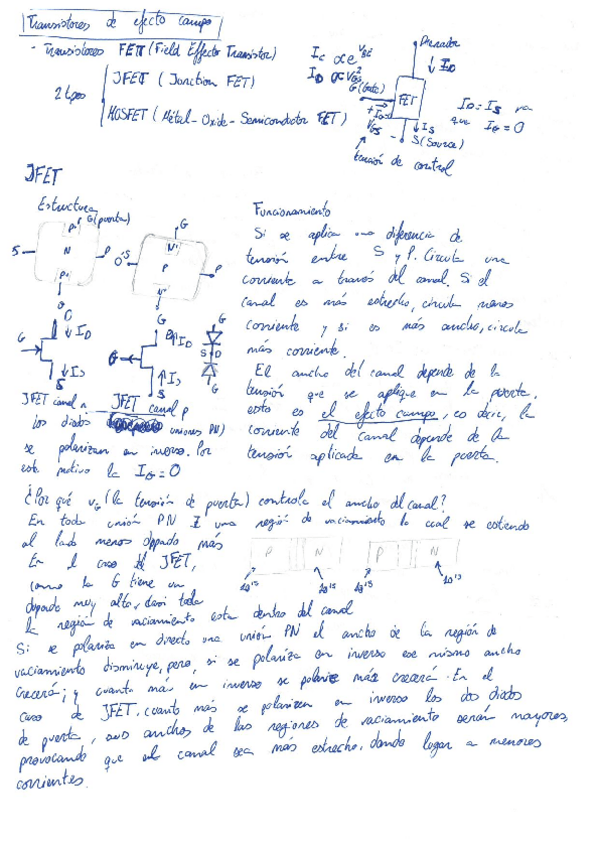 Transistores de efecto campo
- Transistores FET (Field Effecto Transistor)
2 tipos
JFET (Jonction FET)
MOSFET (Métal-Oxide-Semiconductor FET)
G (Gate)
FET
Drenador
↓ I_D
I_D = I_S ya
que I_G = 0
↓ I_S
S (Source)
V_GS
tensión de control
JFET
Estructura
G (puerta)
P
N
S
D
G
N+
P
S
D
G
↓ I_D
↓ I_S
S
G
I_D
↑ I_S
S
G
S D
G
JFET canal n
JFET canal p
los diodos uniones PN)
se polarizan en inverso. Por
este motivo la I_G = 0
Funcionamiento
Si se aplica una diferencia de
tensión entre S y P. Circula una
corriente a través del canal. Si el
canal es más estrecho, circula menos
corriente y si es más ancho, circula
más corriente.
El ancho del canal depende de la
tensión que se aplique en la puerta.
esto es el efecto campo, es decir, la
corriente del canal depende de la
tensión aplicada en la puerta.
¿Por qué v_G (la tensión de puerta) controla el ancho del canal?
En toda unión PN I una región de vaciamiento la cual se extiende
al lado menos dopado más
P N P N
10^15 10^15
En el caso del JFET,
como la G tiene un
dopado muy alto, casi toda
la región de vaciamiento esta dentro del canal
Si se polariza en directo una unión PN el ancho de la región de
vaciamiento disminuye, pero, si se polariza en inverso ese mismo ancho
crecerá; y cuanto más en inverso se polarice más crecerá. En el
caso de JFET, cuanto más se polarizen en inverso los dos diodos
de puerta, sus anchos de las regiones de vaciamiento serán mayores,
provocando que el canal sea más estrecho, dando lugar a menores
corrientes.